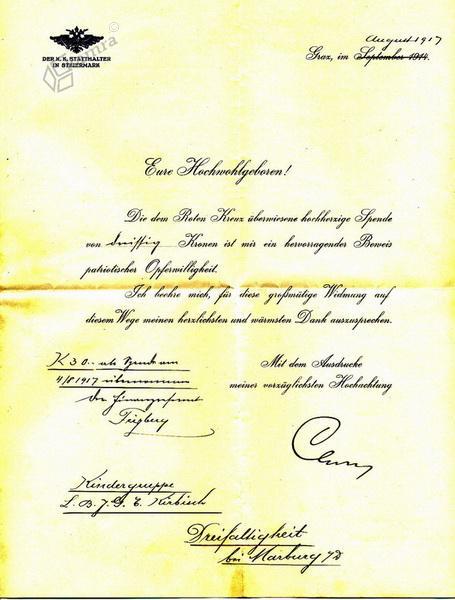 DER K. K. STATTHALTER
IN STEIERMARK
August 1917
Graz, im September 1914.
Eure Hochwohlgeboren!
Die dem Roten Kreuz überwiesene hochherzige Spende
von dreissig Kronen ist mir ein hervorragender Beweis
patriotischer Opferwilligkeit.
Ich beehre mich, für diese großmütige Widmung auf
diesem Wege meinen herzlichsten und wärmsten Dank auszusprechen.
Mit dem Ausdrucke
meiner vorzüglichsten Hochachtung
K 30.- als Spende am
4/8 1917 übernommen
Der
Kindergruppe
L. B. J. G. E. Kirbisch
Dreifaltigkeit
bei Marburg a/D